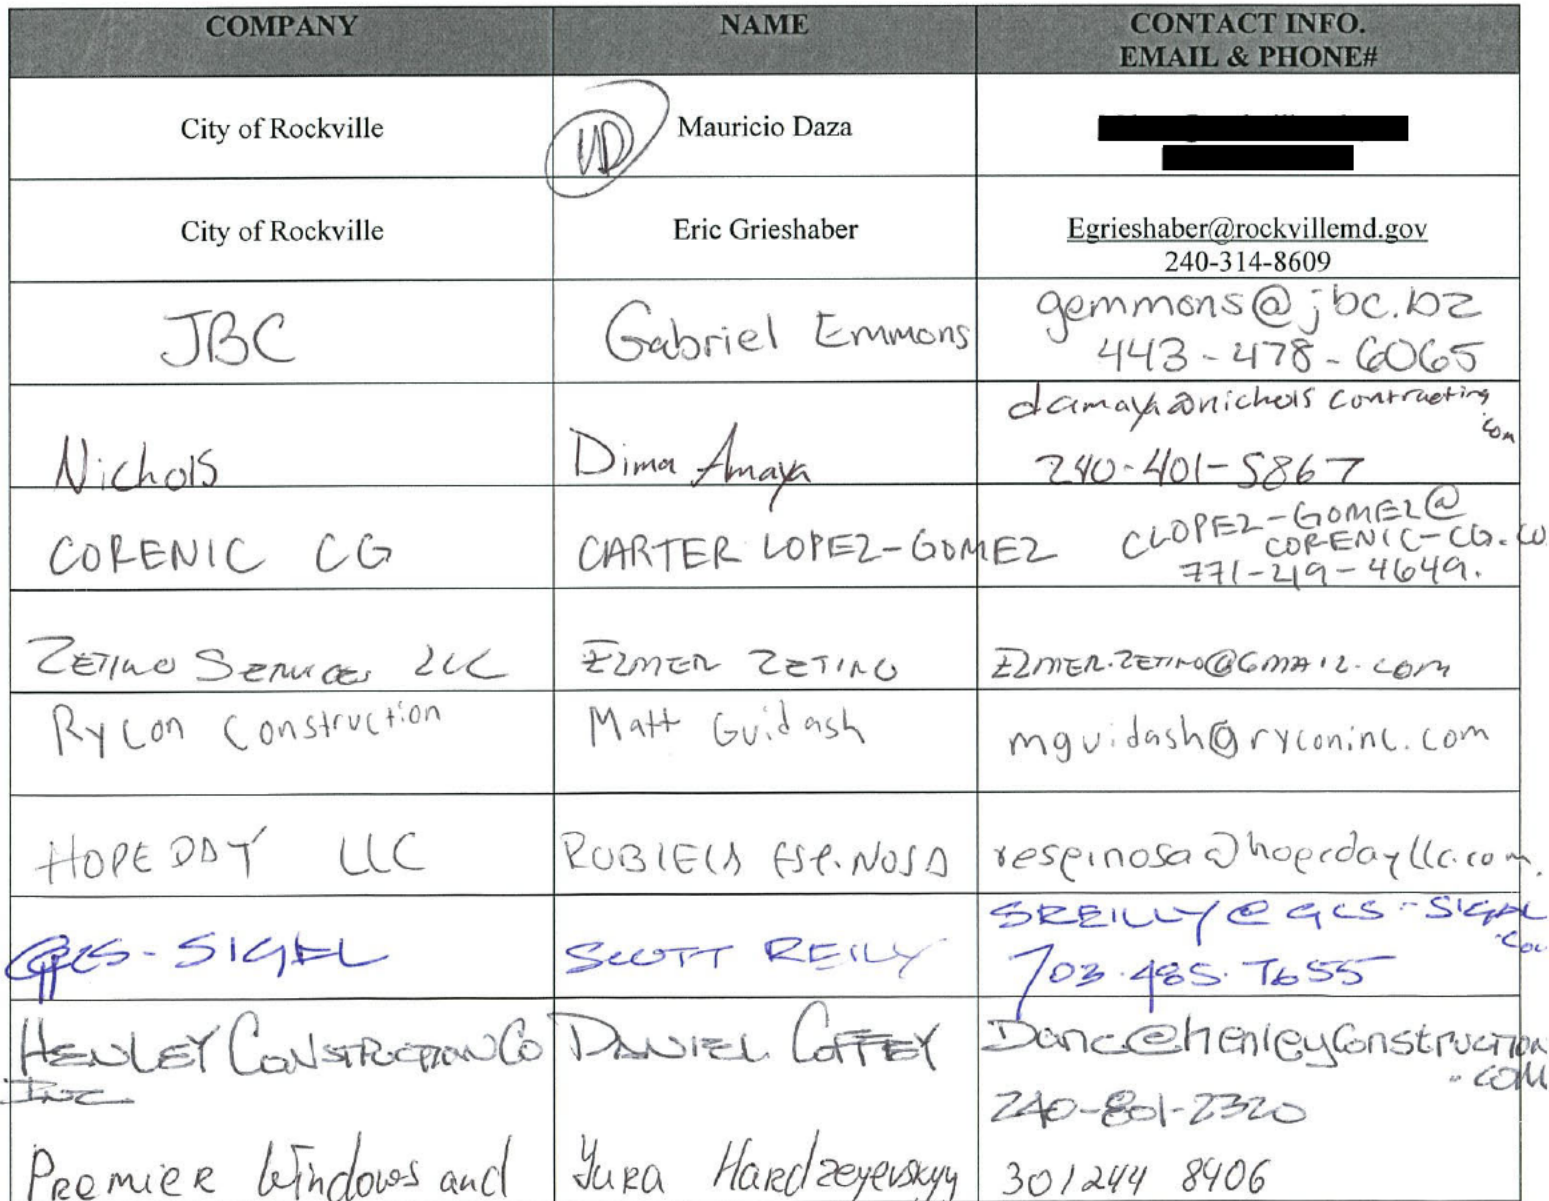 COMPANY NAME CONTACT INFO.
EMAIL & PHONE#
City of Rockville MD Mauricio Daza
City of Rockville Eric Grieshaber Egrieshaber@rockvillemd.gov
240-314-8609
JBC Gabriel Emmons gemmons@jbc.bz
443-478-6065
Nichols Dima Amaya damaya@nicholscontracting
.com
240-401-5867
CORENIC CG CARTER LOPEZ-GOMEZ CLOPEZ-GOMEZ@
CORENIC-CG.CO
771-219-4649.
ZETINO SERVICES LLC ELMER ZETINO ELMER.ZETINO@GMAIL.COM
Rycon Construction Matt Guidash mguidash@ryconinc.com
HOPEDAY LLC RUBIELA ESPINOSA respinosa@hopedayllc.com.
GCS-SIGAL SCOTT REILY SREILLY@GCS-SIGAL
.com
703.485.7655
HENLEY CONSTRUCTION CO DANIEL COFFEY Danc@henleyconstruction
INC .COM
240-801-2320
PREMIER Windows and YURA Hardzeyevskyy 301 244 8406